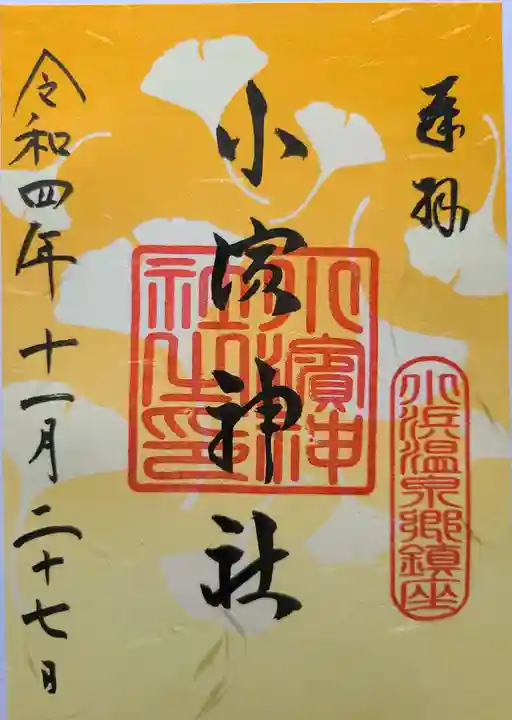 奉拝
小浜温泉郷鎮座
小濱神社
小濱神
社之印
令和四年十一月二十七日